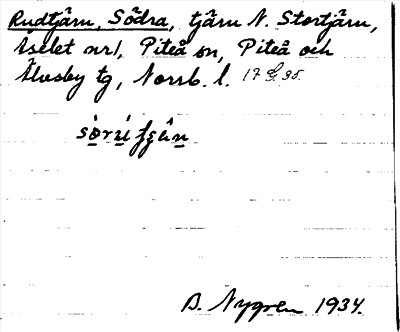 Rudtjärn, Södra, tjärn N. Stortjärn,
Åselet nr 1, Piteå sn, Piteå och
Älvsby tg, Norrb. l.
B. Nygren 1934.